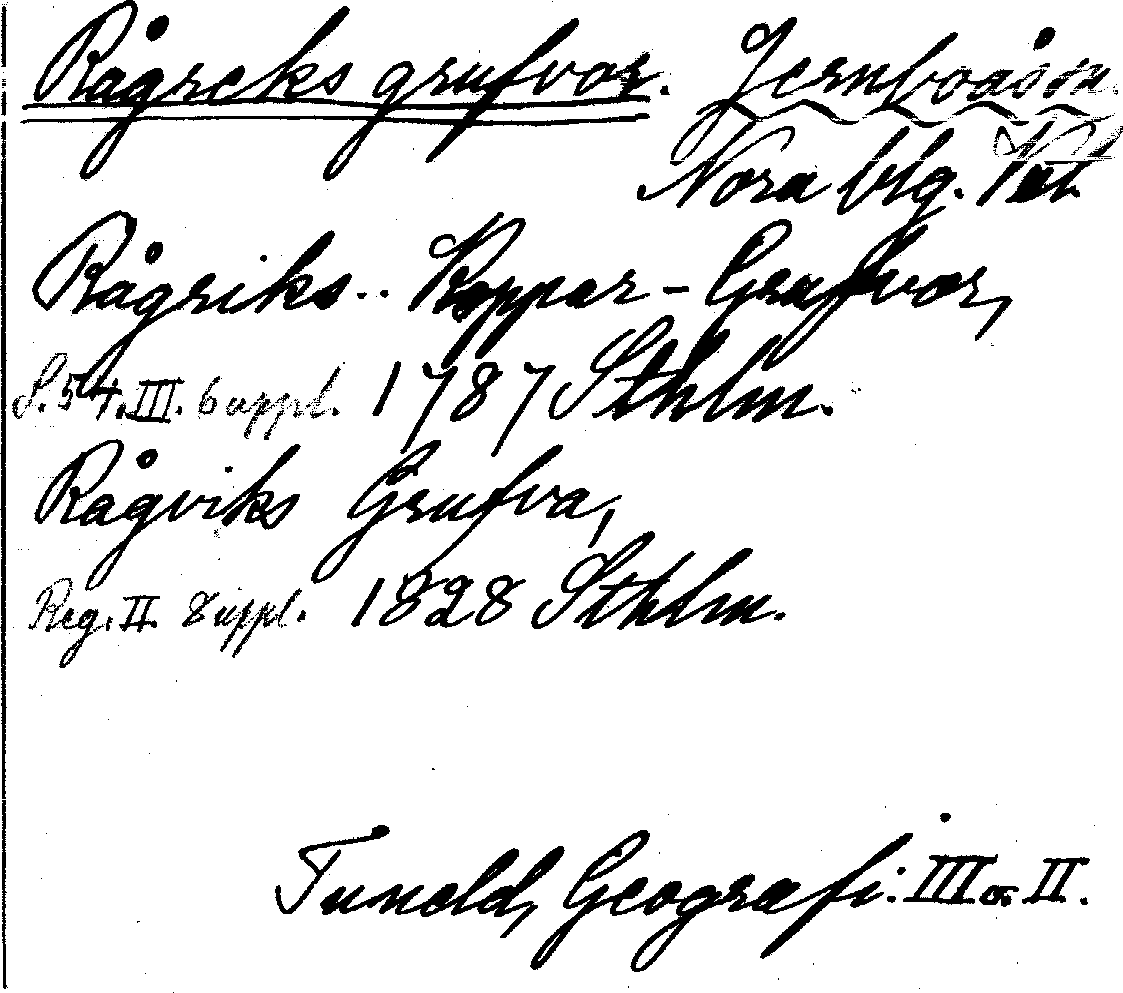 Rågreks grufvor. Jernboåsen.
Nora blg. Vstl.
Rågriks.. Koppar-Grufvor,
S. 54. III. 6 uppl. 1787 Sthlm.
Rågviks Grufva,
Reg. II. 8 uppl. 1828 Sthlm.
Tuneld, Geografi. III o. II.